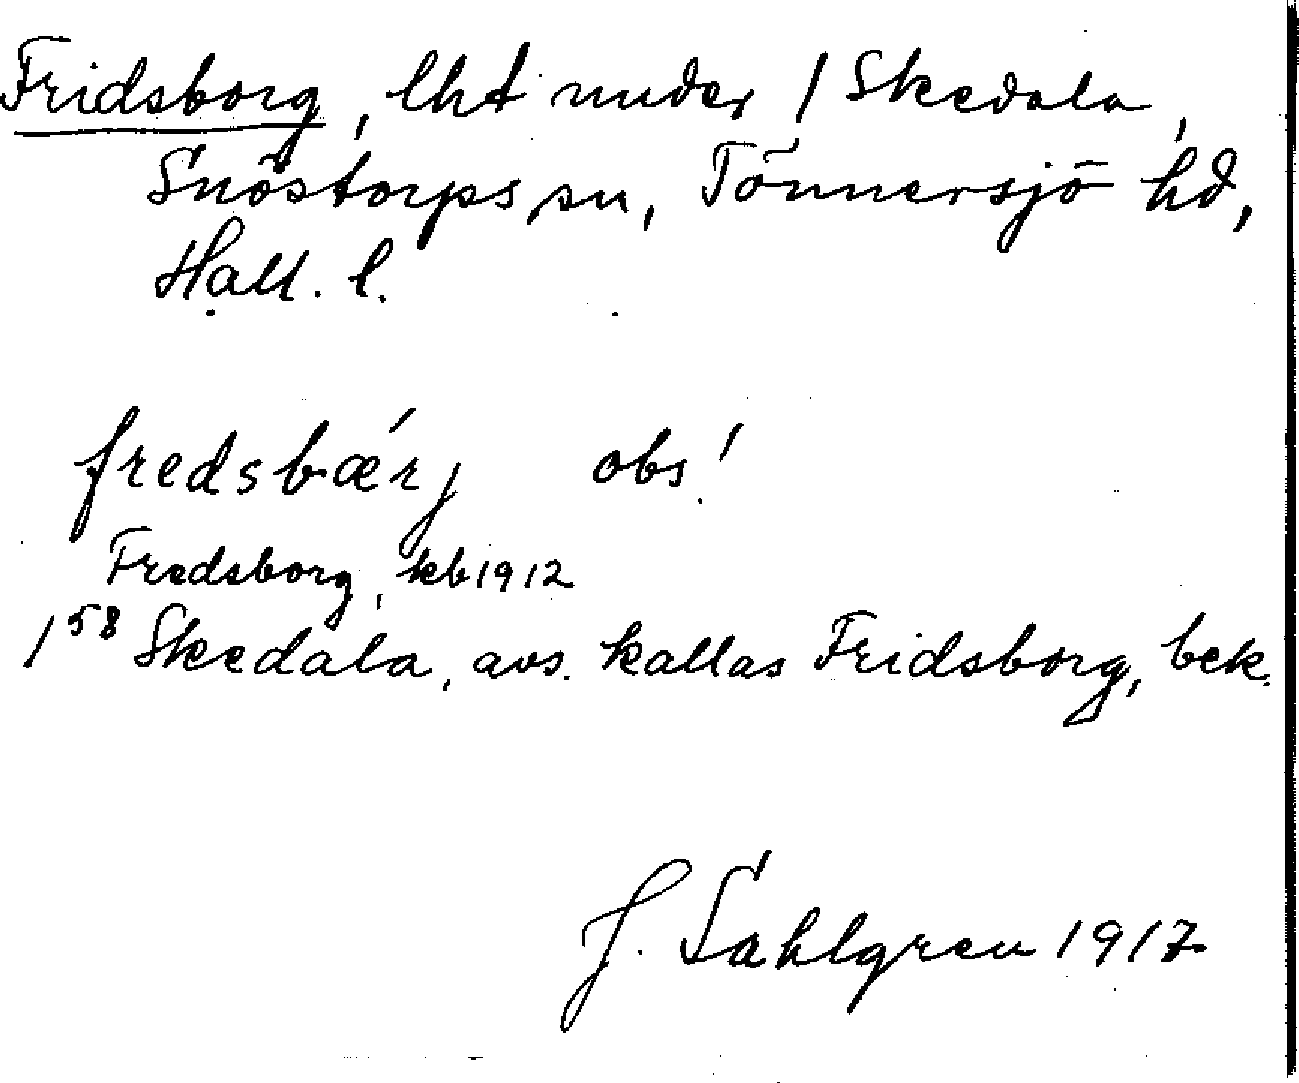 Fridsborg, lht under 1 Skedala,
Snöstorps sn, Tönnersjö hd,
Hall. l.
fredsbǽrj obs!
Fredsborg, kb 1912
1 58 Skedala, avs. kallas Fridsborg, bek.
J. Sahlgren 1917